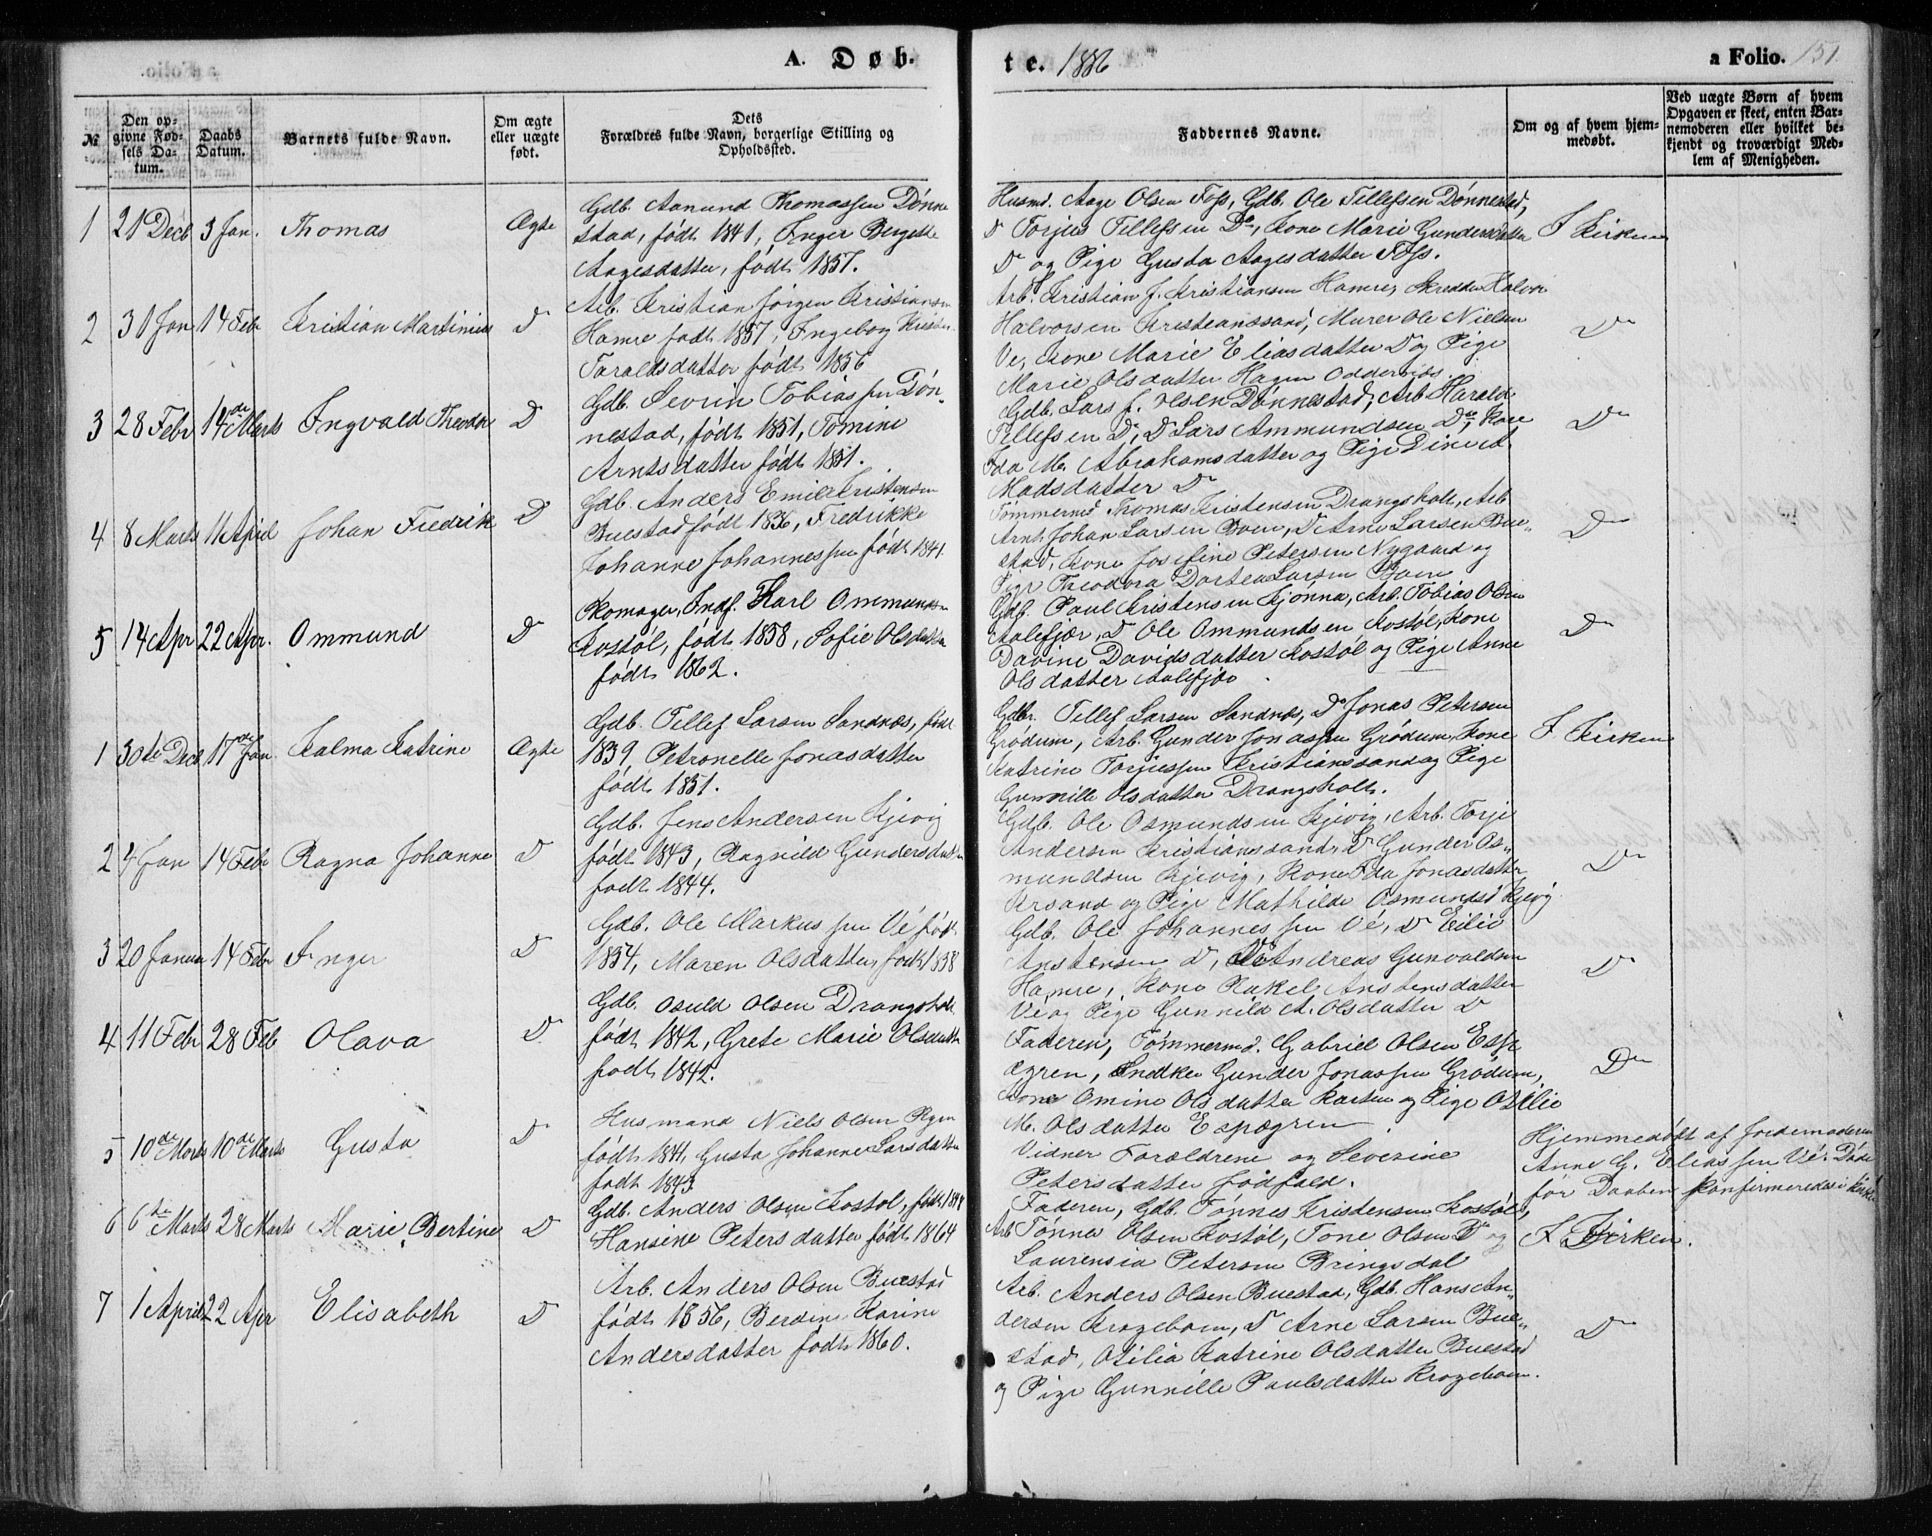 A. Døb-
te. 1886
a Folio. 151.
№
Den op-
givne Fød-
sels Da-
tum.
Daabs
Datum.
Barnets fulde Navn.
Om ægte
eller uægte
født.
Dets
Forældres fulde Navn, borgerlige Stilling og
Opholdssted.
Faddernes Navne.
Om og af hvem hjem-
medøbt.
Ved uægte Børn af hvem
Opgaven er skeet, enten Bar-
nemoderen eller hvilket be-
kjendt og troværdigt Med-
lem af Menigheden.
1 21 Decb 3 Jan. Thomas Ægte
Gdb. Aamund Thomassen Dønne
stad, født 1841, Inger Bergitte
Aagesdatter, født 1857.
Husmd. Aage Olsen Foss, Gdb. Ole Tellefsen Dønnestad,
D Torjus Tellefsen Do, Kone Marie Gundersdatter
D og Pige Gusta Aagesdatter Foss.
I Kirken
2 31 Jan 14 Febr Kristian Martinius D
Arb. Kristian Jörgen Kristiansen
Hamre født 1857, Ingeborg Kristine
Taraldsdatter født 1856
Arb. Kristian J. Kristiansen Hamre, Skredder Halvor
Halvorsen Kristiansand, Murer Ole Nielsen
Ve, Kone Marie Eliasdatter D og Pige
Marie Olsdatter Hagen Oddernes.
Do
3 28 Febr 14de Marts Ingvald Theodor D
Gdb. Sevrin Tobiassen Døn-
nestad, født 1851, Tomine
Arntsdatter født 1851.
Gdb. Lars J. Olsen Dønnestad, Arb Harald
Tellefsen D, D Lars Ammundsen Do, Kone
Ida M. Abrahamsdatter og Pige
Madsdatter Do
Do
4 8 Marts 11 April Johan Fredrik D
Gdb. Anders Emil Kristensen
Buestad født 1836, Fredrikke
Johanne Johannessen født 1841.
Tømmermd Thomas Kristensen Drangsholt, Arb
Arnt Johan Larsen Boen, D Arne Larsen Bue-
stad, Kone Josefine Petersen Nygaard og
Pige Theodora Dortea Larsen Boen
Do
5 14 Apr 22 Apr. Ommund D
Skomager, Indf. Karl Ommundsen
Kostøl, født 1858, Sofie Olsdatter
født 1862.
Gdb. Paul Kristensen Kjonna, Arb. Tobias Olsen
Aalefjær, D Ole Ommundsen Kostøl, Kone
Davine Davidsdatter Kostøl og Pige Anne
Olsdatter Aalefjær
Do
1 30te Decb 17de Jan. Kalma Katrine Ægte
Gdb. Tellef Larsen Sandnæs, født
1839, Petronelle Jonasdatter
født 1851.
Gdbr. Tellef Larsen Sandnæs, D Jonas Petersen
Grødum, Arb. Gunder Jonassen Grødum, Kone
Katrine Torjussen Kristianssand og Pige
Gunnille Olsdatter Drangsholt.
I Kirken
2 4 Jan 14 Febr Ragna Johanne D
Gdb. Jens Andersen Kjevig
født 1843, Ragnild Gundersdatter
født 1844.
Gdb. Ole Osmundsen Kjevig, Arb. Torje
Andersen Kristianssand, D Gunder Os-
mundsen Kjevig, Kone Ida Jonasdatter
Krsand og Pige Mathilde Osmundsd Kjevig
Do
3 20 Januar 14 Febr Inger D
Gdb. Ole Markussen Vé født
1854, Maren Olsdatter, født 1858
Gdb. Ole Johannessen Vé, D Eilie
Anstensen D, Andreas Gunvaldsen
Hamre, Kone Rakel Anstensdatter
Vé og Pige Gunnild A. Olsdatter D
Do
4 11 Febr 28 Feb Olava D
Gdb. Osuld Olsen Drangsholt
født 1842, Grete Marie Olsdatter
født 1842.
Faderen, Tømmermd. Gabriel Olsen Espe
ægren, Snedker Gunder Jonassen Grødum,
Kone Omine Olsdatter Karten og Pige Otilie
M. Olsdatter Espægren.
Do
5 10de Marts 10de Marts Gusta D
Husmand Niels Olsen Ryen
født 1841, Gusta Johanne Larsdatter
født 1843
Vidner Forældrene og Severine
Petersdatter Fodfald.
Hjemmedøbt af Jordemoderen
Anne G. Eliassen Vé. Døde
før Daaben konfirmeredes i Kirken
6 6te Marts 28 Marts Marie Bertine D
Gdb. Anders Olsen Kostøl, født 1848
Hansine Petersdatter født 1864
Faderen, Gdb. Tønnes Kristensen Kostøl,
Arb Tønnes Olsen Kostøl, Tone Olsen Do og
Laurensia Petersen Bringsdal
I Kirken.
7 1 April 22 Apr Elisabeth D
Arb. Anders Olsen Buestad
født 1856, Berdine Karine
Andersdatter født 1860.
Arb. Anders Olsen Buestad, Gdb. Hans An-
dersen Krogeboen, D Arne Larsen Bue-
stad, Otilia Katrine Olsdatter Buestad
og Pige Gunnille Paulsdatter Krogeboen.
Do